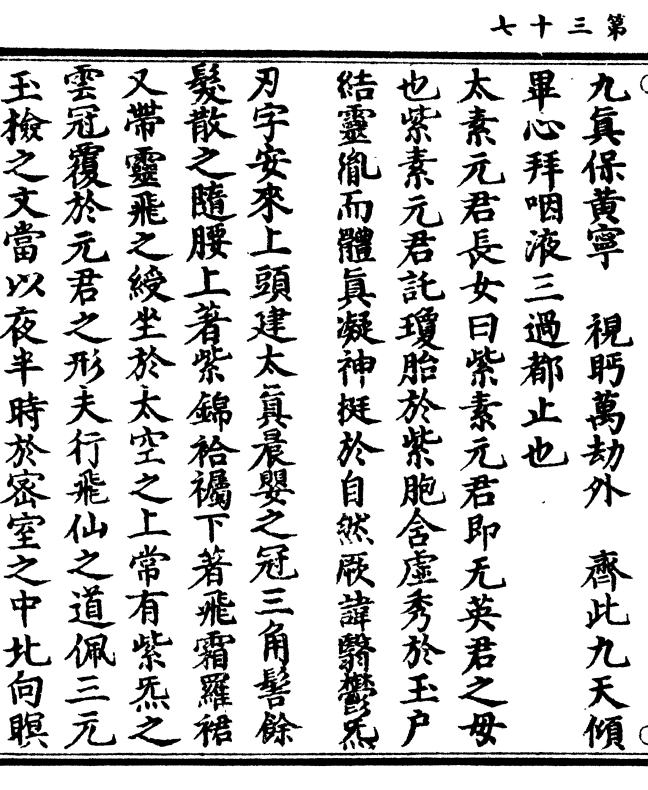 第三十七
九眞保黄寧　視眄萬劫外　齊此九天傾
畢心拜咽液三過都止也
太素元君長女曰紫素元君即无英君之母
也紫素元君託瓊胎於紫胞含虛秀於玉户
結靈胤而體眞凝神挺於自然厥諱翳鬱炁
刃字安來上頭建太眞晨嬰之冠三角髻餘
髮散之隨腰上著紫錦袷襡下著飛霜羅裙
又帶靈飛之綬坐於太空之上常有紫炁之
雲冠覆於元君之形夫行飛仙之道佩三元
玉撿之文當以夜半時於密室之中北向瞑